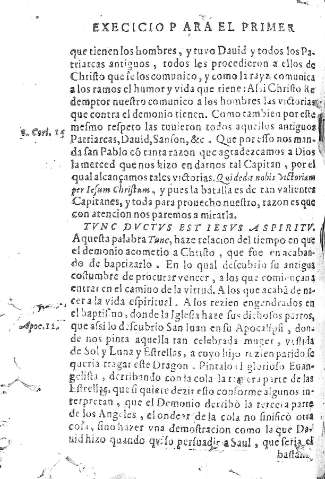 EXECICIO PARA EL PRIMER
que tienen los hombres, y tuvo Dauid y todos los Pa-
triarcas antiguos, todos les procedieron a ellos de
Christo que se los comunico, y como la rayz comunica
a los ramos el humor y vida que tiene: Assi Christo Re
demptor nuestro comunico a los hombres las victorias
que contra el demonio tienen. Como tambien por este
1. Cori. 15
mesmo respeto las tuuieron todos aquellos antiguos
Patriarcas, Dauid, Sanson, &c. Que por esso nos man-
da san Pablo cō tanta razon que agradezcamos a Dios
la merced que nos hizo en darnos tal Capitan, por el
qual alcançamos tales victorias. Qui dedit nobis victoriam
per Iesum Christum, y pues la batalla es de tan valientes
Capitanes, y toda para prouecho nuestro, razon es que
con atencion nos paremos a mirarla.
TVNC DVCTVS EST IESVS A SPIRITV.
Aquesta palabra Tunc, haze relacion del tiempo en que
el demonio acometio a Christo, que fue en acaban-
do de baptizarlo. En lo qual descubrio su antigua
costumbre de procurar vencer, a los que comiençan a
entrar en el camino de la virtud. A los que acabā de na-
cer a la vida espiritual. A los rezien engendrados en
el baptismo, donde la Iglesia haze sus dichosos partos,
Apoc. 12.
que assi lo descubrio San Iuan en su Apocalipsi, don-
de nos pinta aquella tan celebrada muger, vestida
de Sol y Luna y Estrellas, a cuyo hijo rezien parido se
queria tragar este Dragon. Pintalo el glorioso Euan-
gelista, derribando con la cola la tercera parte de las
Estrellas, que si quiere dezir esso conforme algunos in-
terpretan, que el Demonio derribò la tercera parte
de los Angeles, el ondear de la cola no sinificò otra
cosa, sino hazer vna demostracion como la que Da-
uid hizo quando quiso persuadir a Saul, que seria el
bastan-